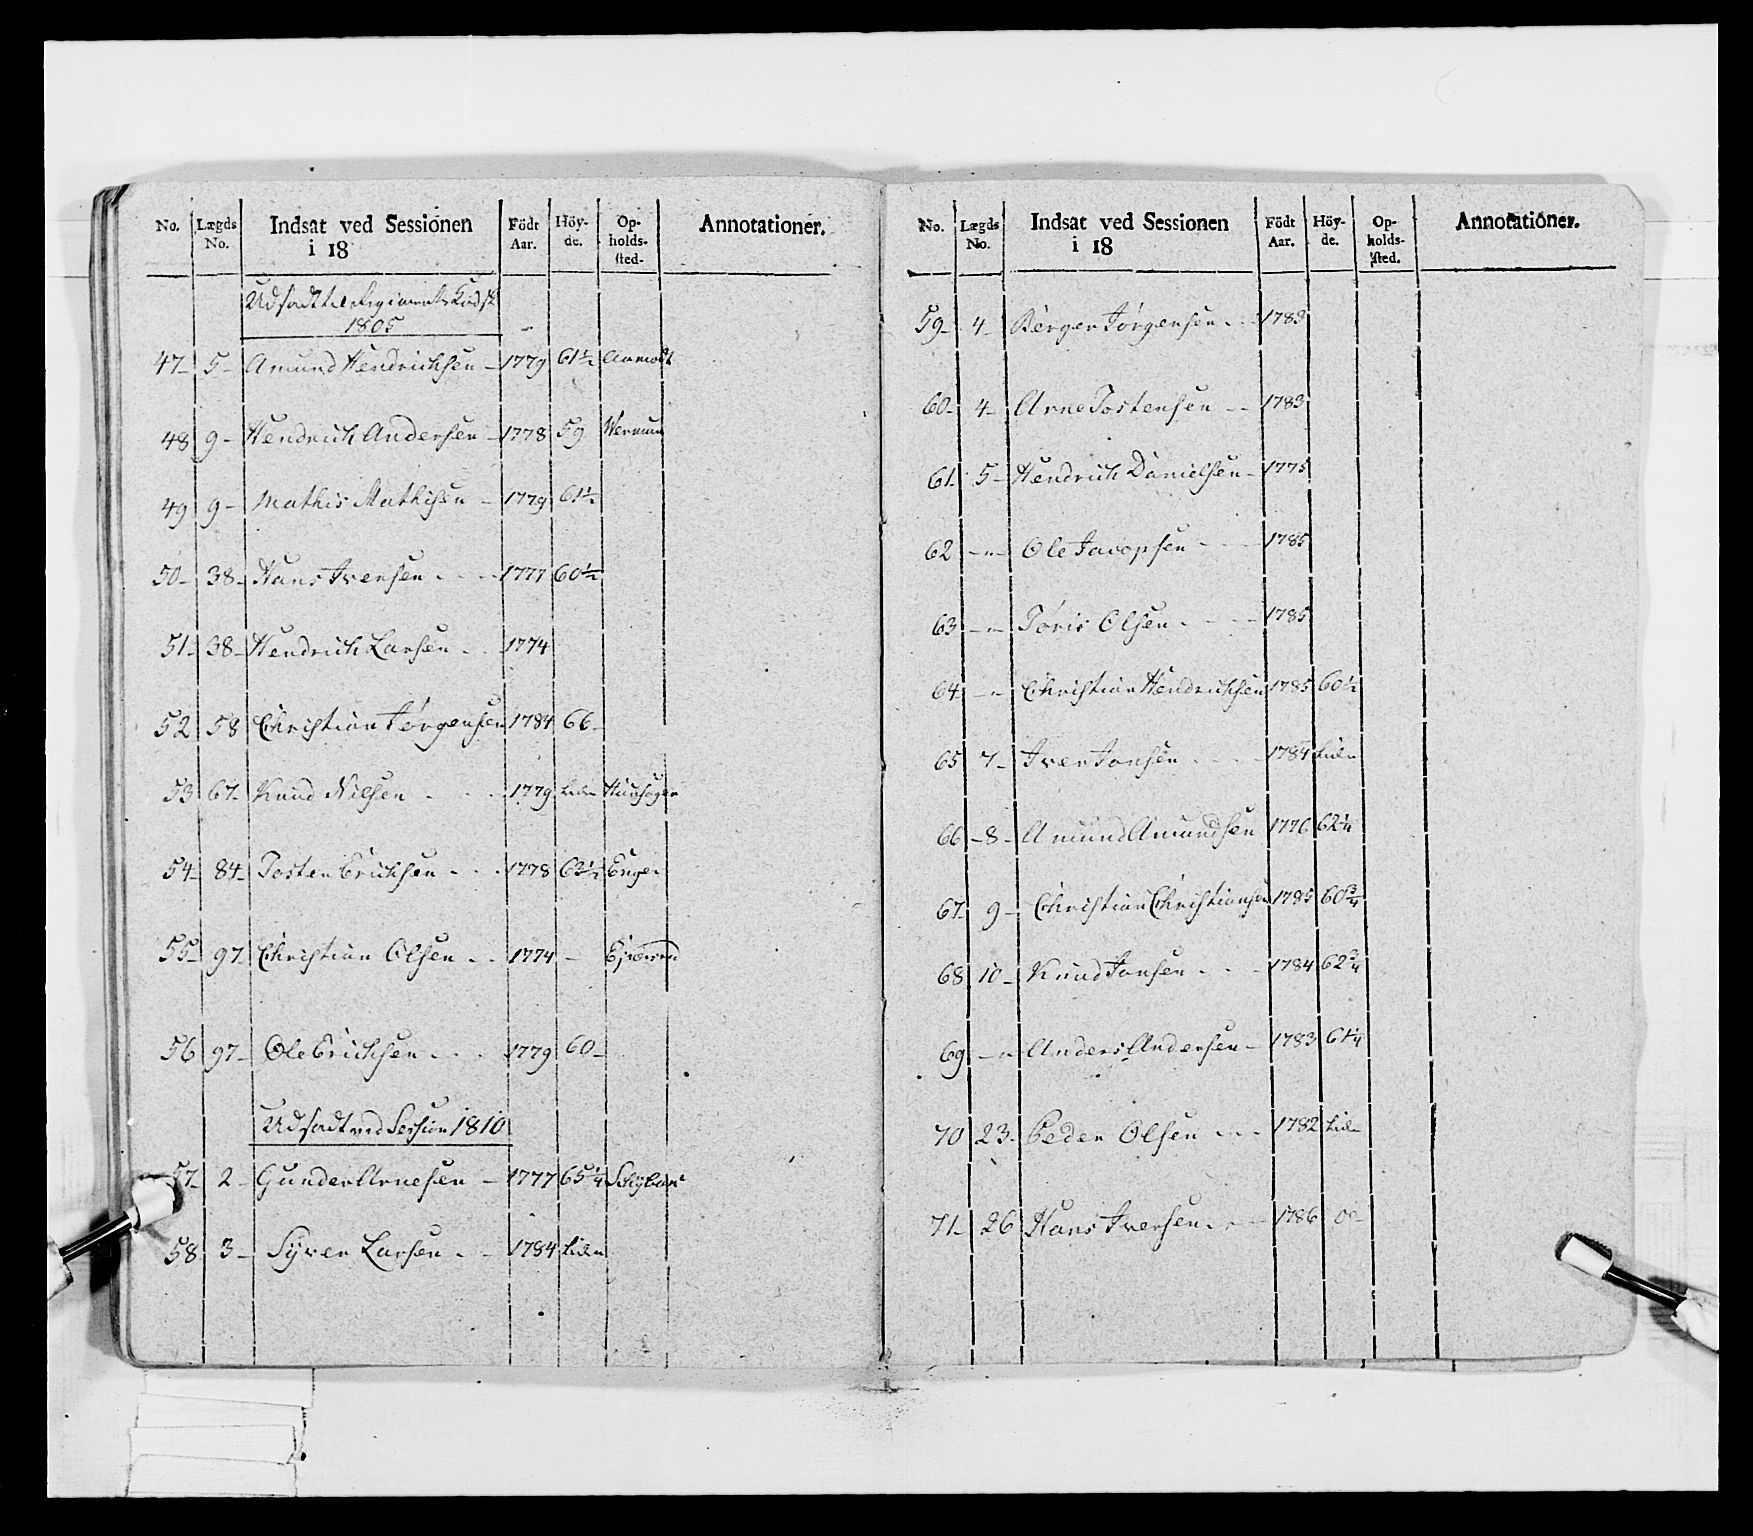 No. Lægds No. Indsat ved Sessionen i 18 Födt Aar. Höyde. Opholdssted. Annotationer.
Udsadt til Regiments
1805
47 5 Amund Hendrichsen 1779 61½
48 9 Hendrich Andersen 1778 59
49 9 Mathis Mathisen 1779 61½
50 38 Hans Iversen 1777 60½
51 38 Hendrich Larsen 1774
52 58 Christian Jørgensen 1784 66
53 67 Knud Nilsen 1779 Liden
54 84 Tosten Erichsen 1778 Enger
55 97 Christian Olsen 1774
56 97 Ole Erichsen 1779 60
Udsadt ved Session 1810
57 2 Gunder Arnesen 1777 65¼
58 3 Syver Larsen 1784 Liden
No. Lægds No. Indsat ved Sessionen i 18 Födt Aar. Höyde. Opholdssted. Annotationer.
59 4 Berger Jørgensen 1783
60 4 Arne Tostensen 1783
61 5 Hendrich Danielsen 1775
62 " Ole Jacopsen 1785
63 " Tøris Olsen 1785
64 " Christian Hendrichsen 1785 60½
65 7 Iver Jonsen 1784 Liden
66 8 Amund Amundsen 1776 62¼
67 9 Christian Christiansen 1785 60¾
68 10 Knud Jonsen 1784 62¾
69 " Anders Andersen 1783 61¼
70 23 Peder Olsen 1782 Liden
71 26 Hans Iversen 1786